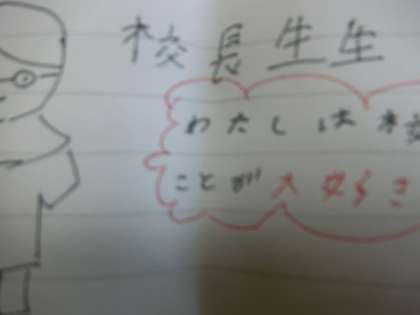 校長生生
わたしは校
ことが大好き